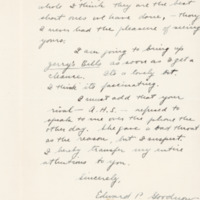 whole I think they are the best
short ones we have done, - though
I never had the pleasure of seeing
yours.
I am going to bring up
Jerry's Bible as soon as I get a
chance. Its a lovely bit.
I think its fascinating.
I must add that your
rival - A.H.I. - refused to
speak to me over the phone the
other day. She gave a bad throat
as the reason but I suspect.
I lately transfer my entire
attentions to you.
Sincerely,
Edward P. Goodnow